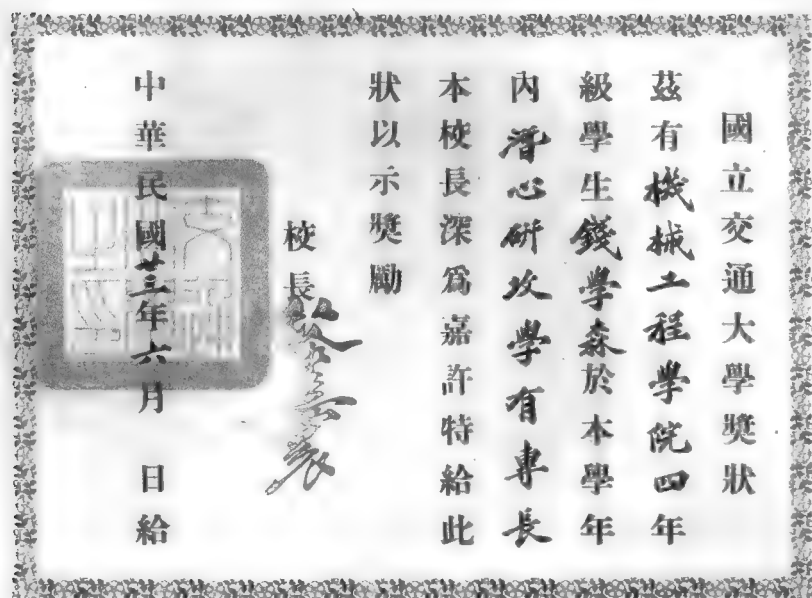 國立交通大學獎狀
茲有機械工程學院四年
級學生錢學森於本學年
內潛心研攻學有專長
本校長深為嘉許特給此
狀以示獎勵
校長黎照寰
中華民國廿三年六月 日給